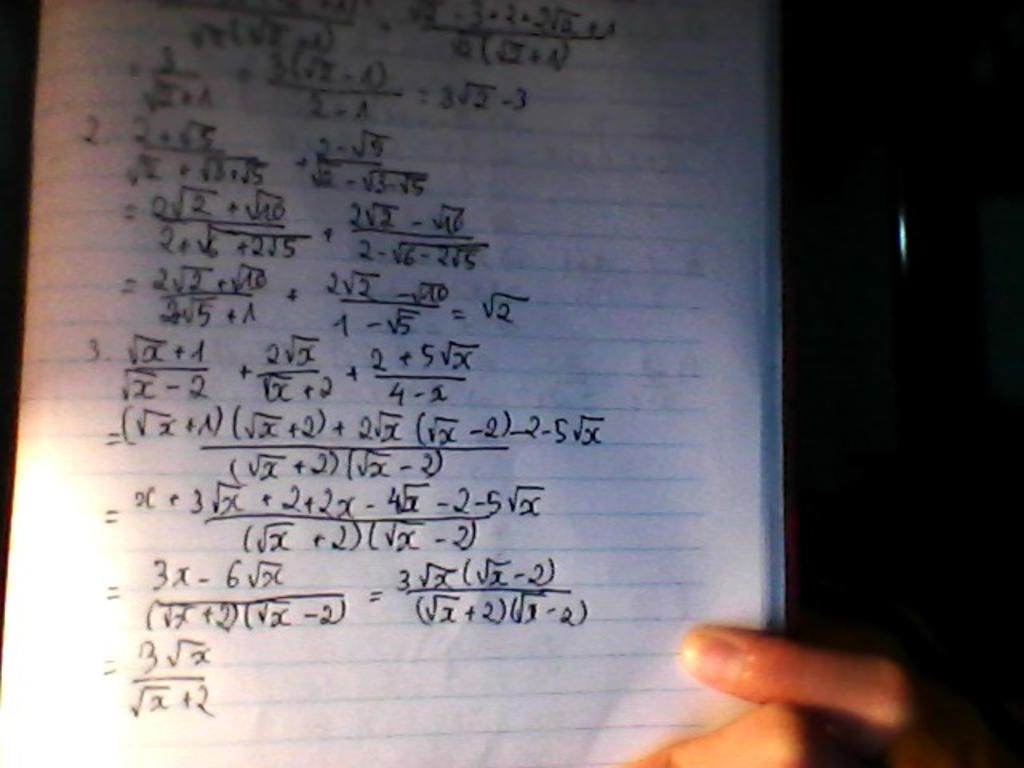 √2 - 3 + 2 + 2√2 + 1
√2(√2+1) = √2(√2+1)
= 3/(√2+1) = 3(√2-1)/(2-1) = 3√2 - 3
2. (2+√5)/(√2 + √(3+√5)) + (2-√5)/(√2 - √(3-√5))
= (2√2 + √10)/(2+√(6+2√5)) + (2√2 - √10)/(2-√(6-2√5))
= (2√2 + √10)/(√5+1) + (2√2 - √10)/(1-√5) = √2
3. (√x + 1)/(√x - 2) + 2√x/(√x + 2) + (2 + 5√x)/(4-x)
= ((√x+1)(√x+2) + 2√x(√x-2) - 2 - 5√x)/((√x+2)(√x-2))
= (x + 3√x + 2 + 2x - 4√x - 2 - 5√x)/((√x+2)(√x-2))
= (3x - 6√x)/((√x+2)(√x-2)) = 3√x(√x-2)/((√x+2)(√x-2))
= 3√x/(√x+2)